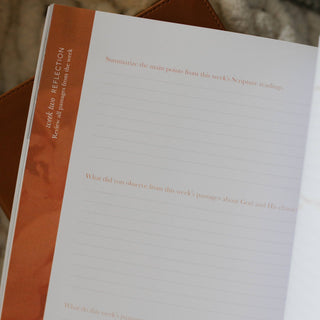 week two REFLECTION
Review all passages from the week
Summarize the main points from this week's Scripture readings.
What did you observe from this week's passages about God and His
What do this week's passages